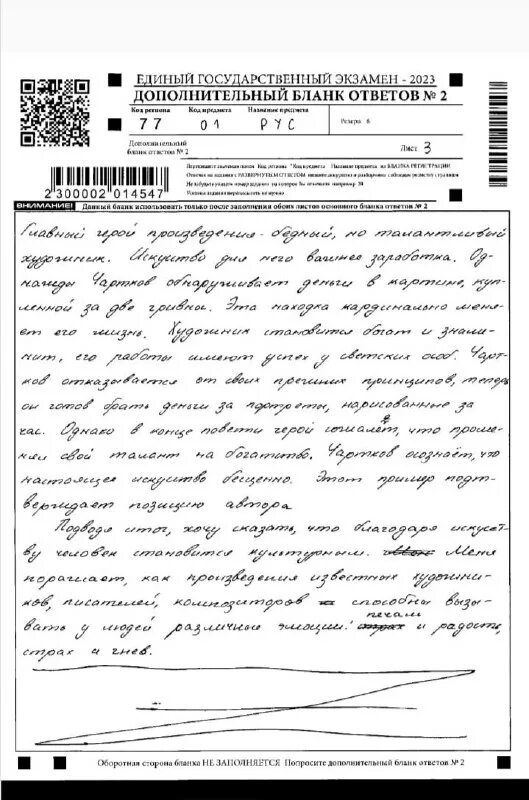 ЕДИНЫЙ ГОСУДАРСТВЕННЫЙ ЭКЗАМЕН - 2023
ДОПОЛНИТЕЛЬНЫЙ БЛАНК ОТВЕТОВ № 2
Код региона Код предмета Название предмета
77 01 РУС
Резерв - 6
Дополнительный
бланк ответов № 2
Лист 3
2300002014547
ВНИМАНИЕ! Данный бланк использовать только после заполнения обоих листов основного бланка ответов № 2
Главный герой произведения - бедный, но талантливый
художник. Искусство для него важнее заработка. Од-
нажды Чартков обнаруживает деньги в картине, куп-
ленной за две гривны. Эта находка кардинально меня-
ет его жизнь. Художник становится богат и знаме-
нит, его работы имеют успех у светских особ. Чарт-
ков отказывается от своих прежних принципов, теперь
он готов брать деньги за портреты, нарисованные за
час. Однако в конце повести герой сожалеет, что проме-
нял свой талант на богатство. Чартков осознаёт, что
настоящее искусство бесценно. Этот пример подт-
верждает позицию автора.
Подводя итог, хочу сказать, что благодаря искусст-
ву человек становится культурным. Меня
поражает, как произведения известных художни-
ков, писателей, композиторов способны вызы-
вать у людей различные эмоции: печаль и радость,
страх и гнев.
Оборотная сторона бланка НЕ ЗАПОЛНЯЕТСЯ Попросите дополнительный бланк ответов № 2